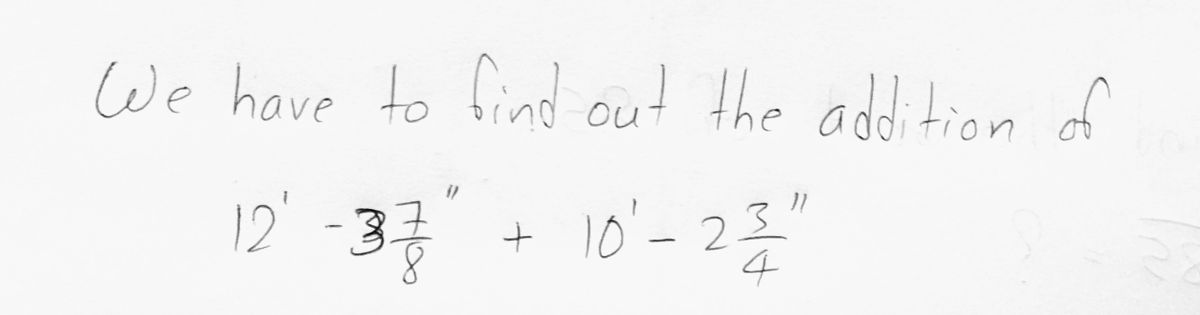 We have to find out the addition of
12' - 3 7/8" + 10' - 2 3/4"